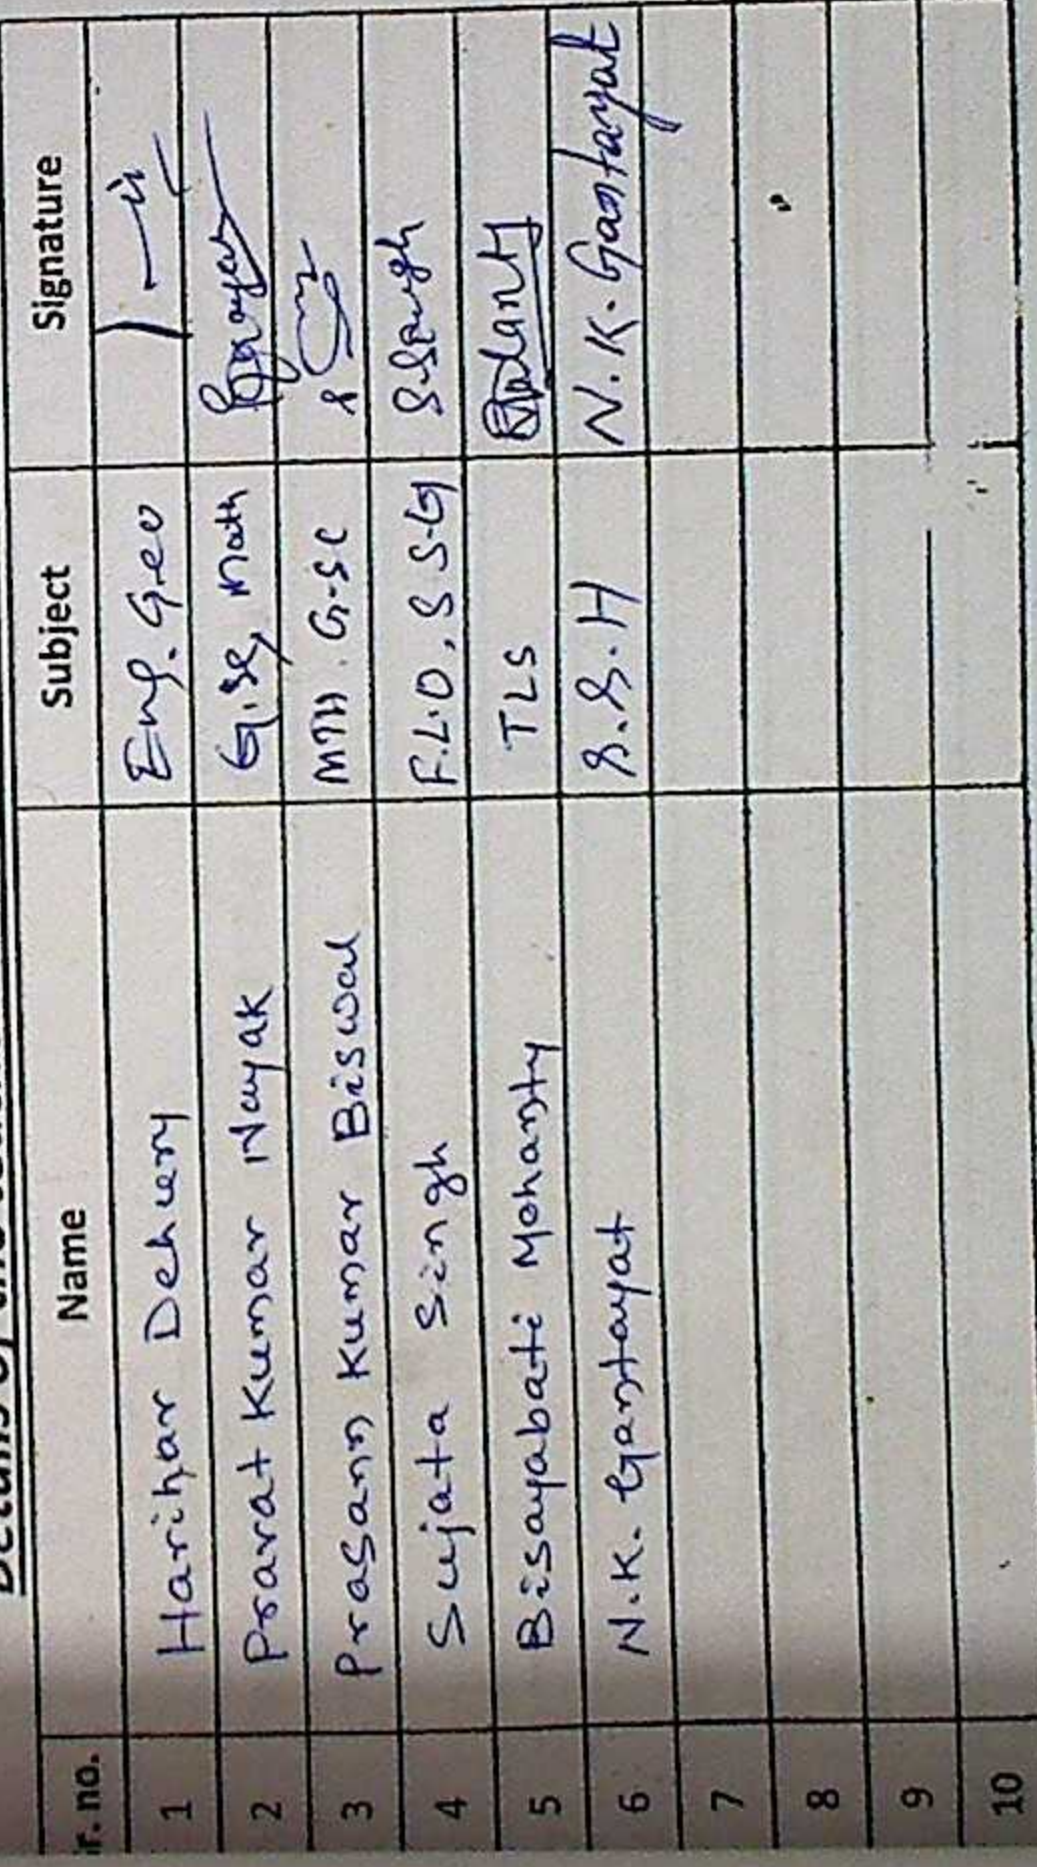 Details of the
Sr. no. Name Subject Signature
1 Harihar Dehury Eng. Geo
2 Prarat Kumar Nayak G.Sc, Math
3 Prasann Kumar Biswal MTH. G-SC
4 Sujata Singh F.L.O, S S-G S.Singh
5 Bisayabati Mohanty TLS
6 N.K. Gantayat S.S.H N.K. Gantayat
7
8
9
10